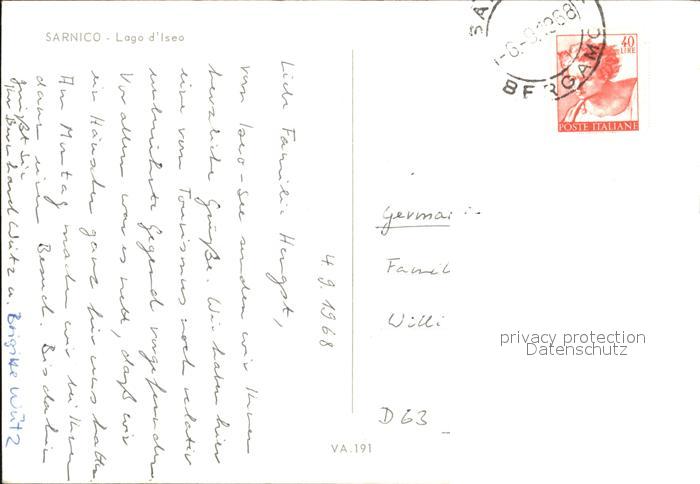 SARNICO - Lago d'Iseo
4.9.1968
Liebe Familie Hengst,
vom Iseo-See senden wir Ihnen
herzliche Grüße. Wir haben hier
eine vom Tourismus noch relativ
unberührte Gegend vorgefunden.
Vor allem war es nett, daß wir
ein Häuschen ganz für uns hatten.
Am Montag machen wir bei Ihnen
dann einen Besuch. Bis dahin
grüßt Sie
Ihr Burkhard Wütz u. Brigitte Wütz
VA.191
-6-9.1968
BERGAMO
40
LIRE
POSTE ITALIANE
Germa
Famil
Willi
D 63
privacy protection
Datenschutz